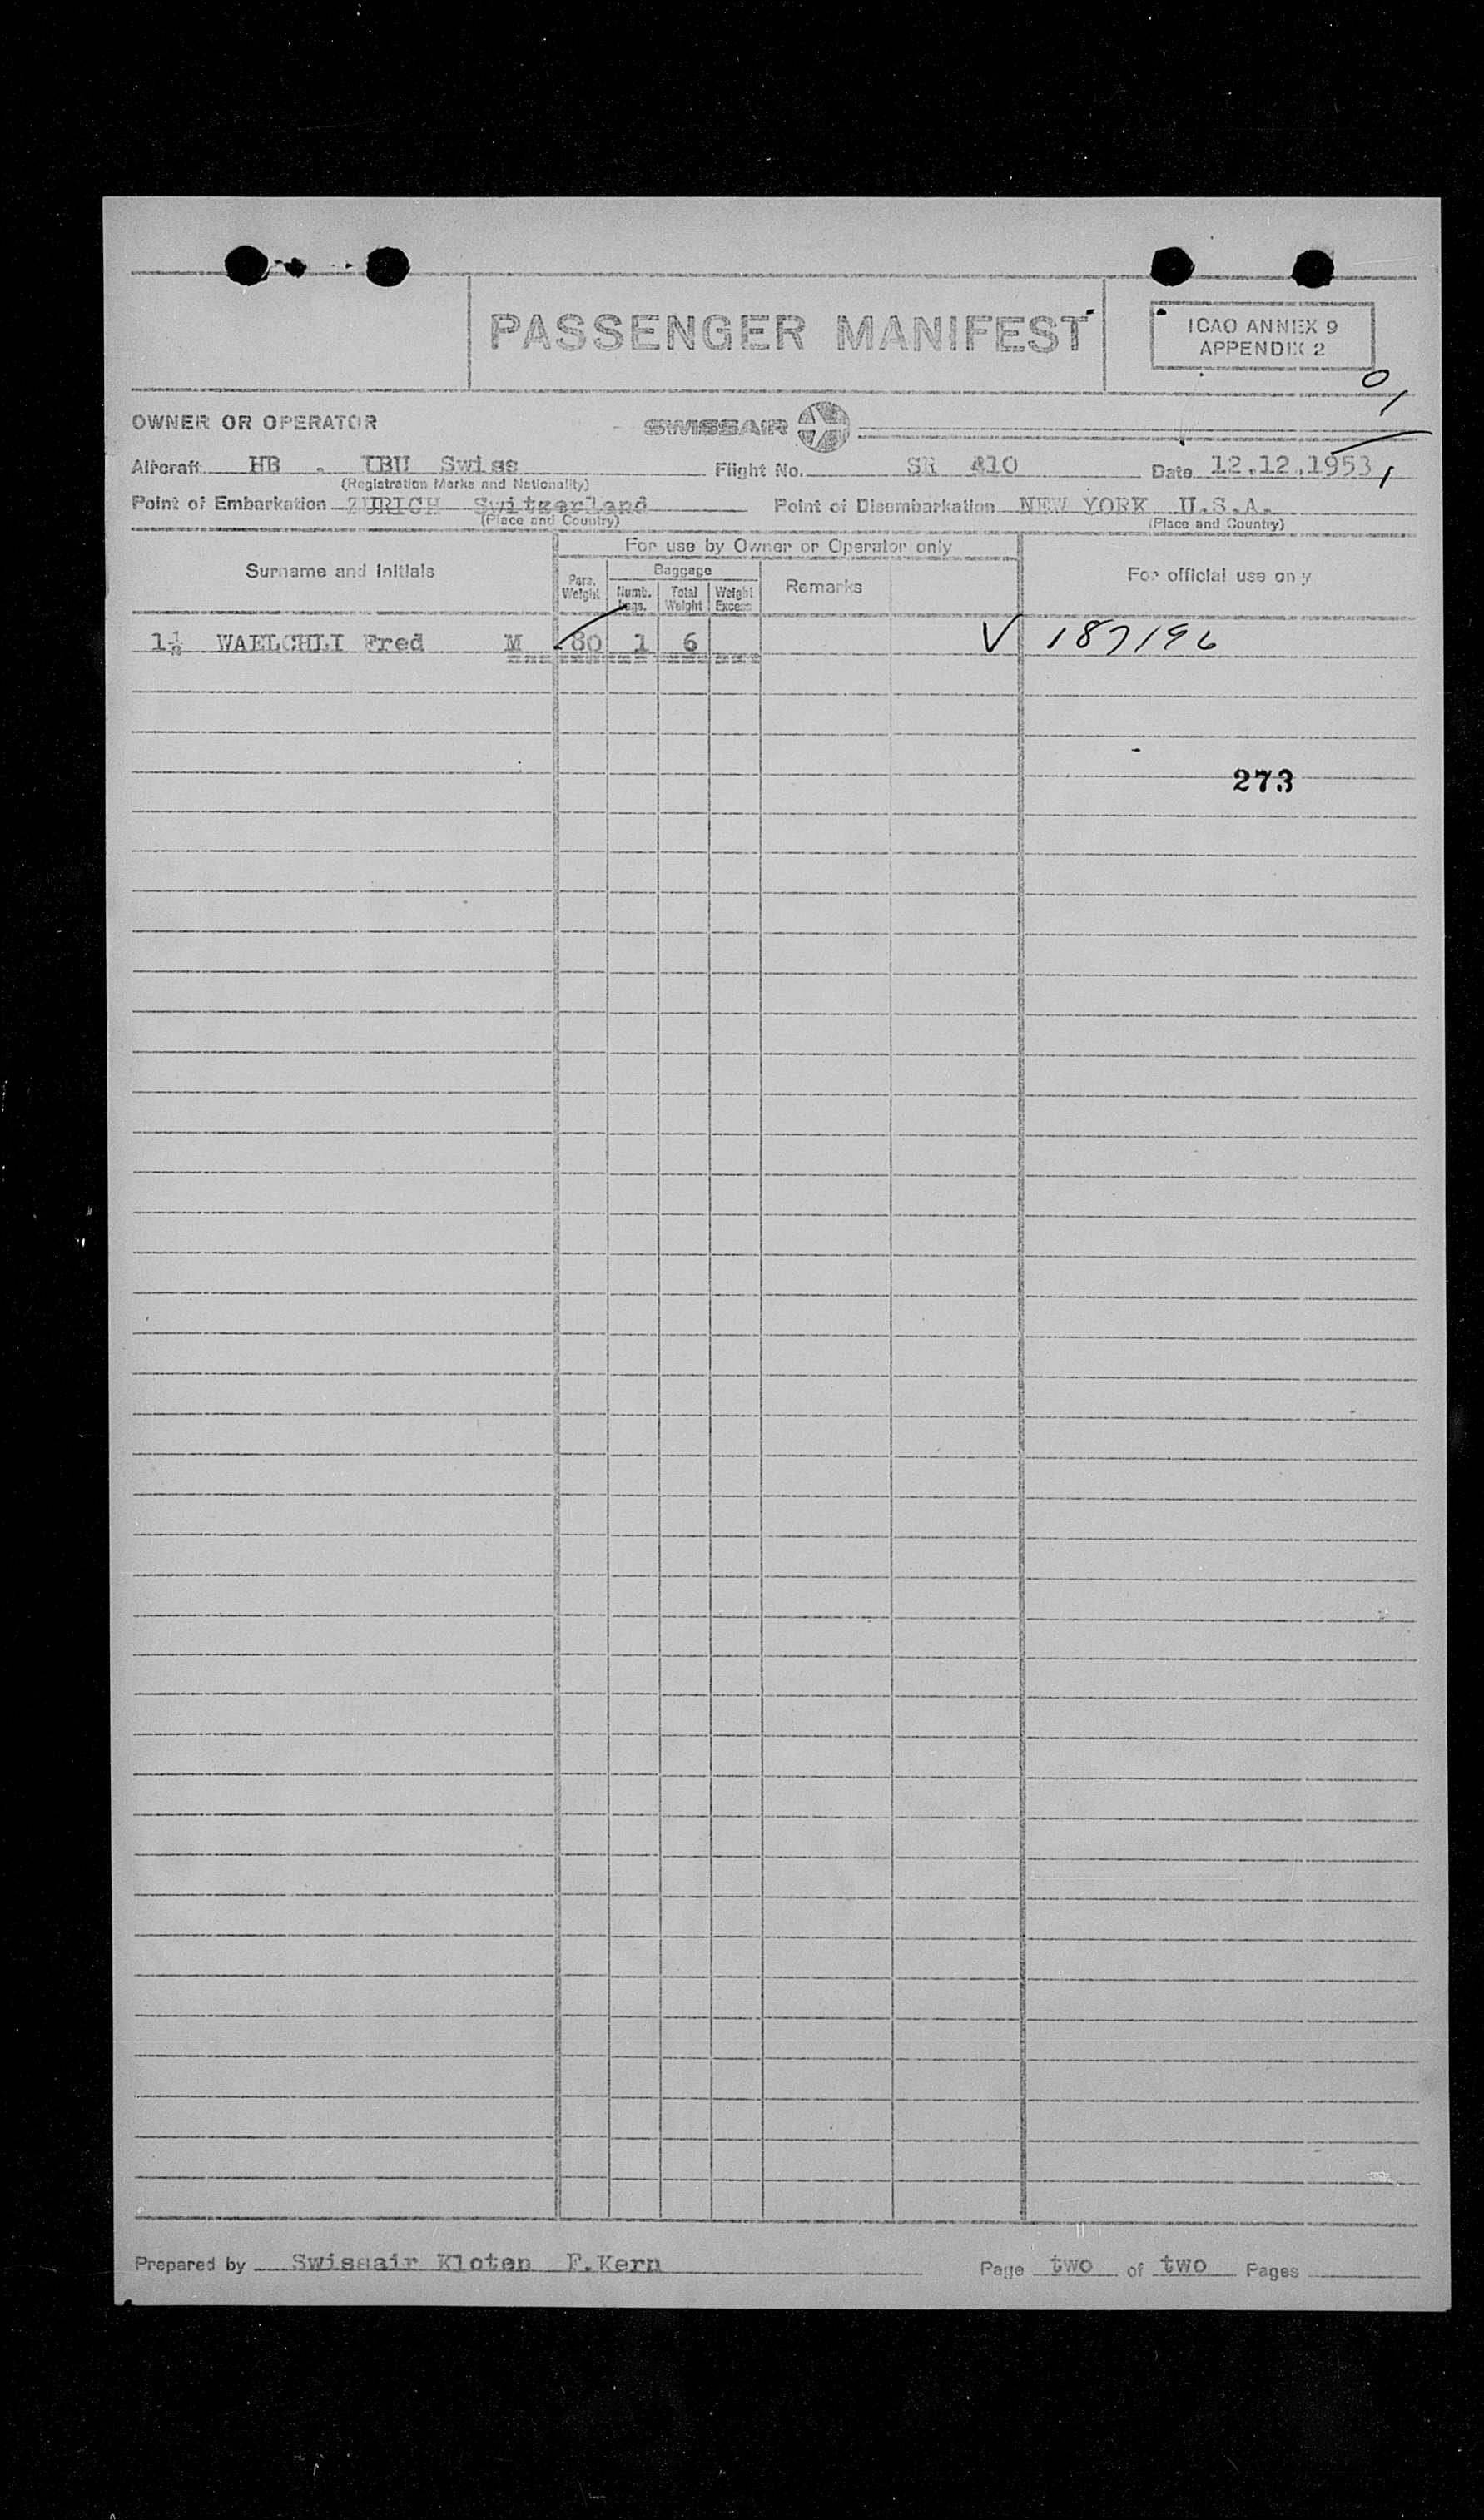 PASSENGER MANIFEST
ICAO ANNEX 9
APPENDIX 2
OWNER OR OPERATOR SWISSAIR
Aircraft HB . IBU Swiss Flight No. SR 410 Date 12.12.1953
(Registration Marks and Nationality)
Point of Embarkation ZURICH Switzerland Point of Disembarkation NEW YORK U.S.A.
(Place and Country) (Place and Country)
For use by Owner or Operator only
Surname and Initials Pers. Weight Baggage Remarks For official use only
Numb. bags. Total Weight Weight Excess
WAELCHLI Fred M 80 1 6 V 187196
273
Prepared by Swissair Kloten F.Kern Page two of two Pages